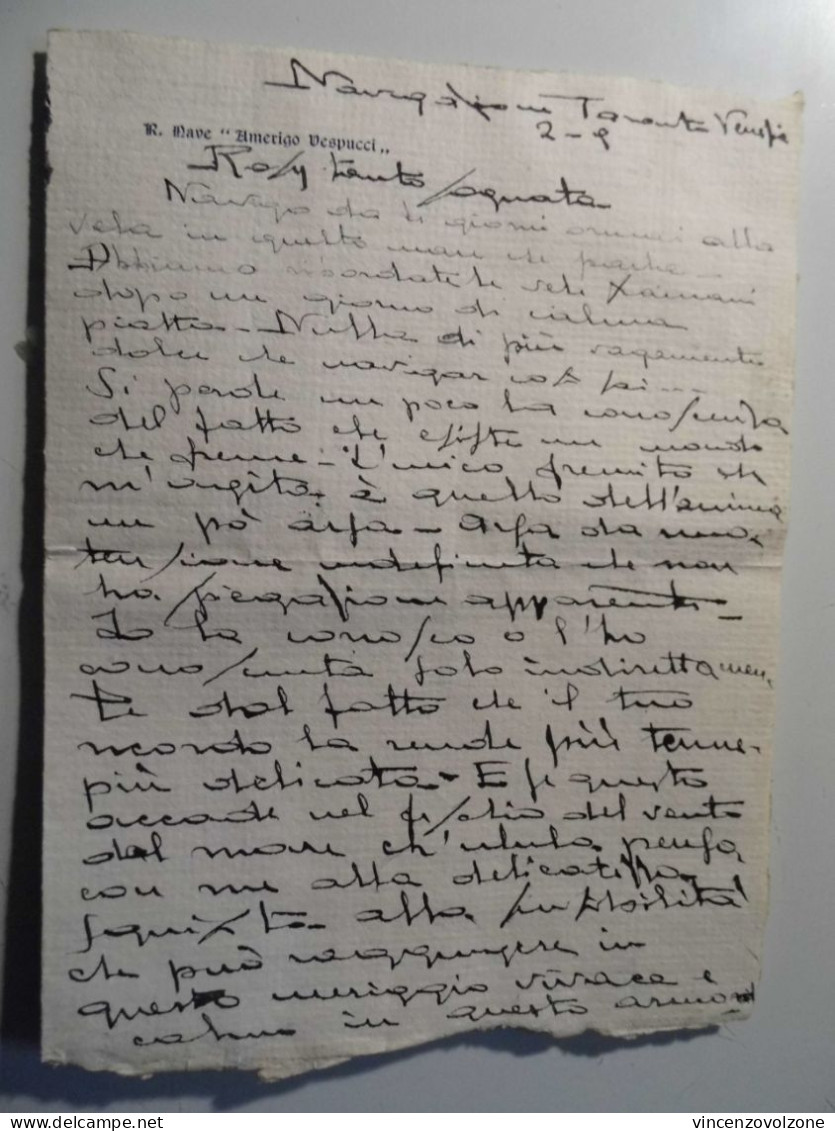 Navigazione Taranto Venezia
2-9
R. Nave "Amerigo Vespucci„
Rosy tanto sognata
Navigo da giorni ormai alla
vela in questo mare che
Abbiamo le vele stamani
dopo un giorno di calma
piatta - Nulla di più vagamente
dolce che navigar così
Si perde un poco la conoscenza
del fatto che esiste un mondo
che freme - L'unico fremito che
m'agita è quello dell'anima
un pò arsa - Arsa da una
tensione indefinita che non
ha spiegazione apparente -
Io la conosco o l'ho
conosciuta solo indirettamen-
te dal fatto che il tuo
ricordo la rende più tenue
più delicata - E se questo
accade nel fischio del vento
dal mare ch'ulula pensa
con me alla delicatezza
squisita alla sensibilità
che può raggiungere in
questo meriggio vivace e
calmo in questo
vincenzovolzone
delcampe.net